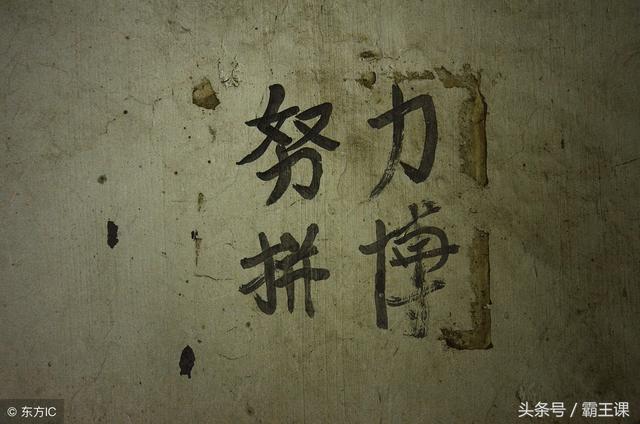 努力
拼博
© 东方IC
头条号 / 霸王课